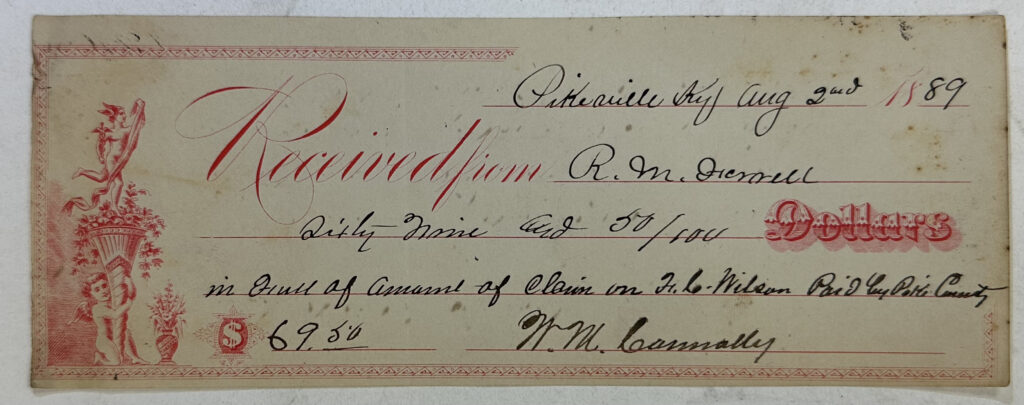 Pikeville Ky Aug 2nd 1889
Received from R. M. Ferrell
Sixty Nine and 50/100 Dollars
in Full of Amount of Claim on F. C. Wilson Paid by Pike County
$ 69.50 W. M. Connolly